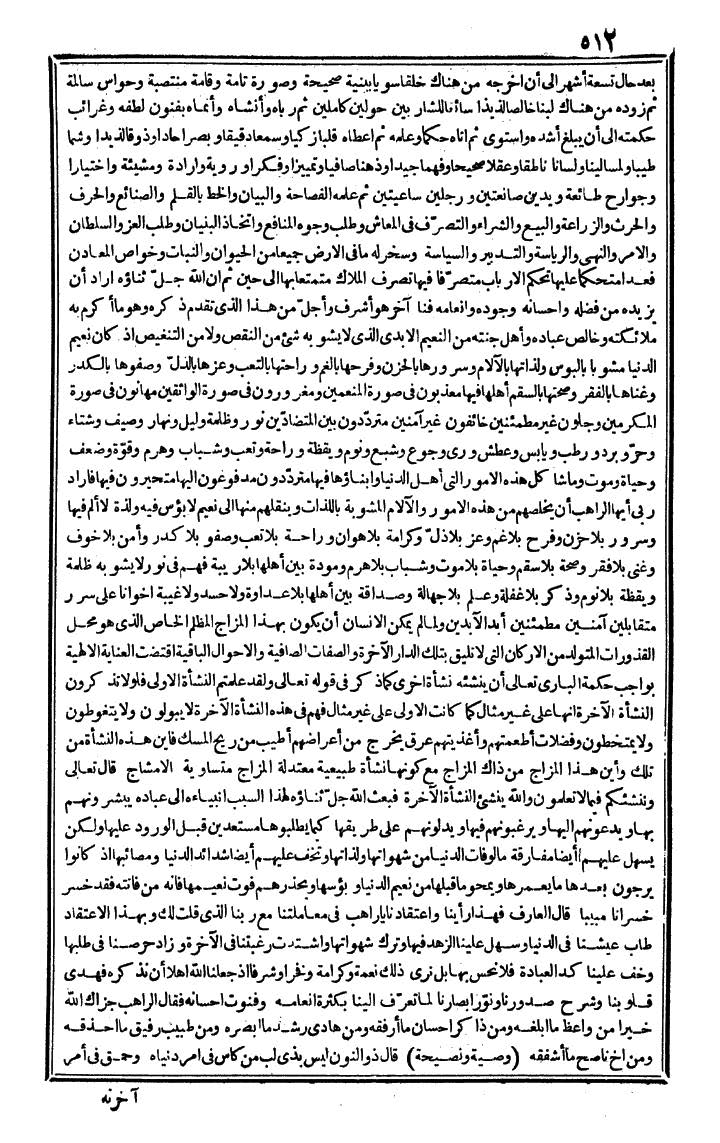 ٥١٢
بعد حال تسعة أشهر الى أن اخرجه من هناك خلقا سويا ببنية صحيحة وصورة تامة وقامة منتصبة وحواس سالمة
ثم زوده من هناك لبنا خالصا لذيذا سائغا للشار بين حولين كاملين ثم رباه وأنشاه وأنماه بفنون لطفه وغرائب
حكمته الى أن يبلغ أشده واستوى ثم اتاه حكما وعلمه ثم اعطاه قلبا زكيا وسمعا دقيقا وبصرا حادا وذوقا لذيذا وشما
طيبا ولمسا لينا ولسانا ناطقا وعقلا صحيحا وفهما جيدا وذهنا صافيا وتمييزا وفكرا وروية وارادة ومشيئة واختيارا
وجوارح طائعة ويدين صانعتين ورجلين ساعيتين ثم علمه الفصاحة والبيان والخط بالقلم والصنائع والحرف
والحرث والزراعة والبيع والشراء والتصرّف فى المعاش وطلب وجوه المنافع واتخاذ البنيان وطلب العز والسلطان
والامر والنهى والرياسة والتدبير والسياسة وسخر له ما فى الارض جيعا من الحيوان والنبات وخواص المعادن
فغدا متحكما عليها تحكم الارباب متصرّفا فيها تصرف الملاك متمتعا بها الى حين ثم ان الله جلّ ثناؤه اراد أن
يزيده من فضله واحسانه وجوده وانعامه فنا آخر هو أشرف وأجلّ من هذا الذى تقدم ذكره وهو ما أكرم به
ملائكته وخالص عباده وأهل جنته من النعيم الابدى الذى لا يشوبه شئ من النقص ولا من التنغيص اذ كان نعيم
الدنيا مشوبا بالبوس ولذاتها بالآلام وسرورها بالحزن وفرحها بالغم وراحتها بالتعب وعزها بالذلّ وصفوها بالكدر
وغناها بالفقر وصحتها بالسقم أهلها فيها معذبون فى صورة المنعمين ومغرورون فى صورة الواثقين مهانون فى صورة
المكرمين وجلون غير مطمئنين خائفون غير آمنين متردّدون بين المتضادّين نور وظلمة وليل ونهار وصيف وشتاء
وحرّ وبرد ورطب ويابس وعطش ورى وجوع وشبع ونوم ويقظة وراحة وتعب وشباب وهرم وقوّة وضعف
وحياة وموت وما شا كل هذه الامور التى أهل الدنيا وابناؤها فيها متردّدون مدفوعون اليها متحيرون فيها فاراد
ربى أيها الراهب أن يخلصهم من هذه الامور والآلام المشوبة باللذات وينقلهم منها الى نعيم لا بؤس فيه ولذة لا ألم فيها
وسرور بلا حزن وفرح بلا غم وعز بلا ذلّ وكرامة بلا هوان وراحة بلا تعب وصفو بلا كدر وأمن بلا خوف
وغنى بلا فقر وصحة بلا سقم وحياة بلا موت وشباب بلا هرم ومودة بين أهلها بلا ريبة فهم فى نور لا يشوبه ظلمة
ويقظة بلا نوم وذكر بلا غفلة وعلم بلا جهالة وصداقة بين أهلها بلا عداوة ولا حسد ولا غيبة اخوانا على سرر
متقابلين آمنين مطمئنين أبد الآبدين ولما لم يمكن الانسان أن يكون بهذا المزاج المظلم الخاص الذى هو محل
القذورات المتولد من الاركان التى لا تليق بتلك الدار الآخرة والصفات الصافية والاحوال الباقية اقتضت العناية الالهية
بواجب حكمة البارى تعالى أن ينشئه نشأة اخرى كما ذكر فى قوله تعالى ولقد علمتم النشأة الاولى فلولا تذكرون
النشأة الآخرة انها على غير مثال كما كانت الاولى على غير مثال فهم فى هذه النشأة الآخرة لا يبولون ولا يتغوطون
ولا يمتخطون وفضلات أطعمتهم وأغذيتهم عرق يخرج من أعراضهم أطيب من ريح المسك فاين هذه النشأة من
تلك وأين هذا المزاج من ذاك المزاج مع كونها نشأة طبيعية معتدلة المزاج متساوية الامشاج قال تعالى
وننشئكم فيما لا تعلمون والله ينشئ النشأة الآخرة فبعث الله جلّ ثناؤه لهذا السبب انبياءه الى عباده يبشرونهم
بها ويدعونهم اليها ويرغبونهم فيها ويدلونهم على طريقها كيما يطلبوها مستعدين قبل الورود عليها ولكن
يسهل عليهم أيضا مفارقة مألوفات الدنيا من شهواتها ولذاتها وتخف عليهم أيضا شدائد الدنيا ومصائبها اذ كانوا
يرجون بعدها ما يعمرها ويمحو ما قبلها من نعيم الدنيا وبؤسها ويحذرهم فوت نعيمها فانه من فاتته فقد خسر
خسرانا مبينا قال العارف فهذا رأينا واعتقادنا يا راهب فى معاملتنا مع ربنا الذى قلت لك وبهذا الاعتقاد
طاب عيشنا فى الدنيا وسهل علينا الزهد فيها وترك شهواتها واشتدت رغبتنا فى الآخرة وزاد حرصنا فى طلبها
وخف علينا كد العبادة فلا نحس بها بل نرى ذلك نعمة وكرامة وفخرا وشرفا اذ جعلنا الله اهلا أن نذكره فهدى
قلوبنا وشرح صدورنا ونوّر ابصارنا لما تعرّف الينا بكثرة انعامه وفنون احسانه فقال الراهب جزاك الله
خيرا من واعظ ما ابلغه ومن ذا كر احسان ما أرفقه ومن هادى رشد ما ابصره ومن طبيب رفيق ما احذقه
ومن اخ ناصح ما أشفقه (وصية ونصيحة) قال ذو النون ليس بذى لب من كاس فى امر دنياه وحمق فى أمر
آخرته